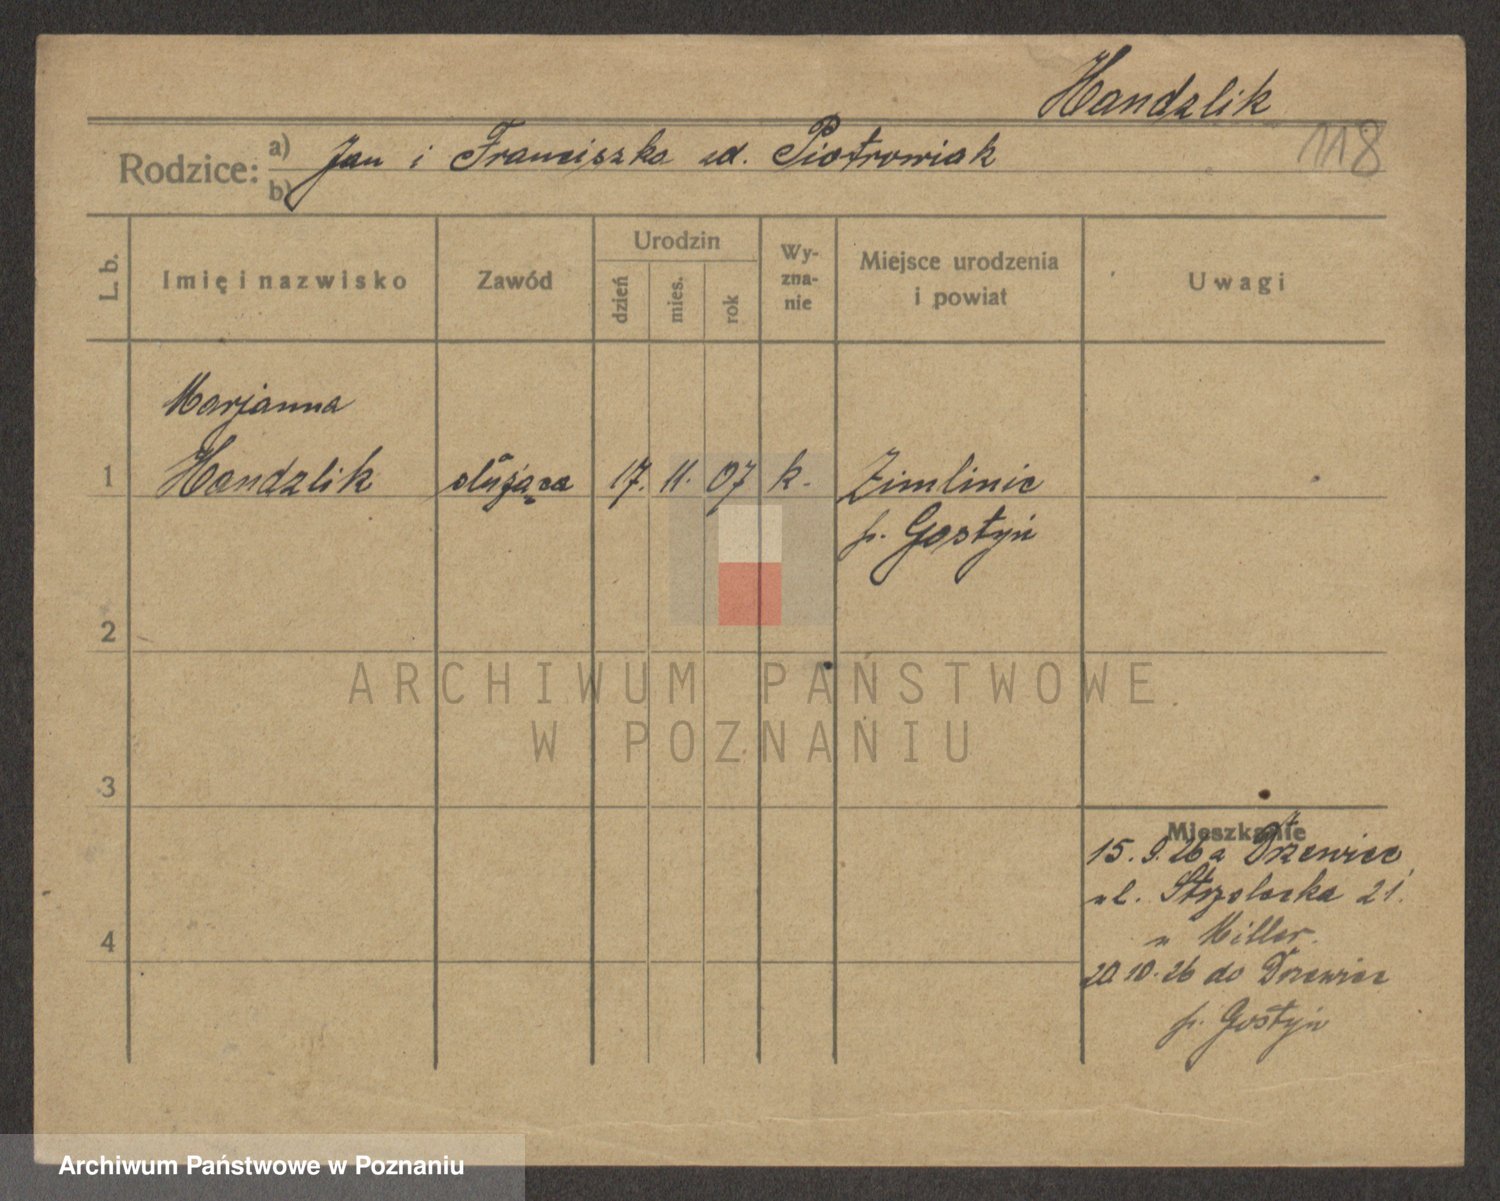 Handzlik
118
Rodzice: a) Jan i Franciszka zd. Piotrowiak
b)
L. b.
Imię i nazwisko
Zawód
Urodzin
dzień
mies.
rok
Wy-
zna-
nie
Miejsce urodzenia
i powiat
Uwagi
Marjanna
1 Handzlik służąca 17. 11. 07 k. Zimlinic
p. Gostyń
2
3
4
Mieszkanie
15. 9. 26 z Drzewiec
ul. Strzelecka 21.
u Miller.
20. 10. 26 do Drzewiec
p. Gostyń
ARCHIWUM PAŃSTWOWE
W POZNANIU
Archiwum Państwowe w Poznaniu